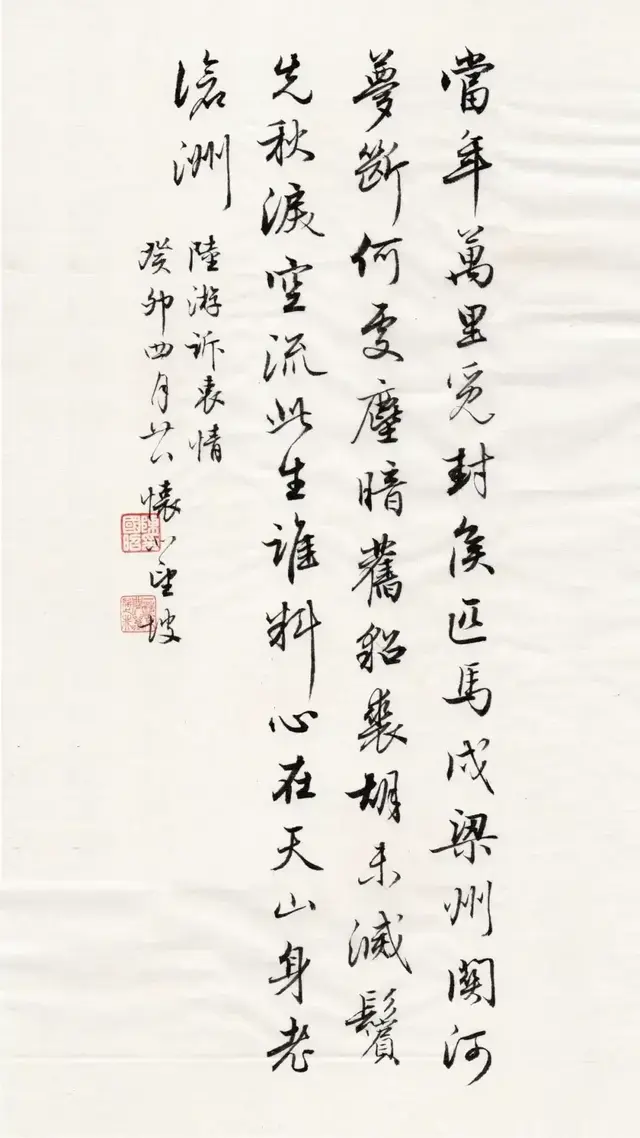 當年萬里覓封侯匹馬戍梁州關河
夢斷何處塵暗舊貂裘胡未滅鬢
先秋淚空流此生誰料心在天山身老
滄洲
陸游訴衷情
癸卯四月懷坡